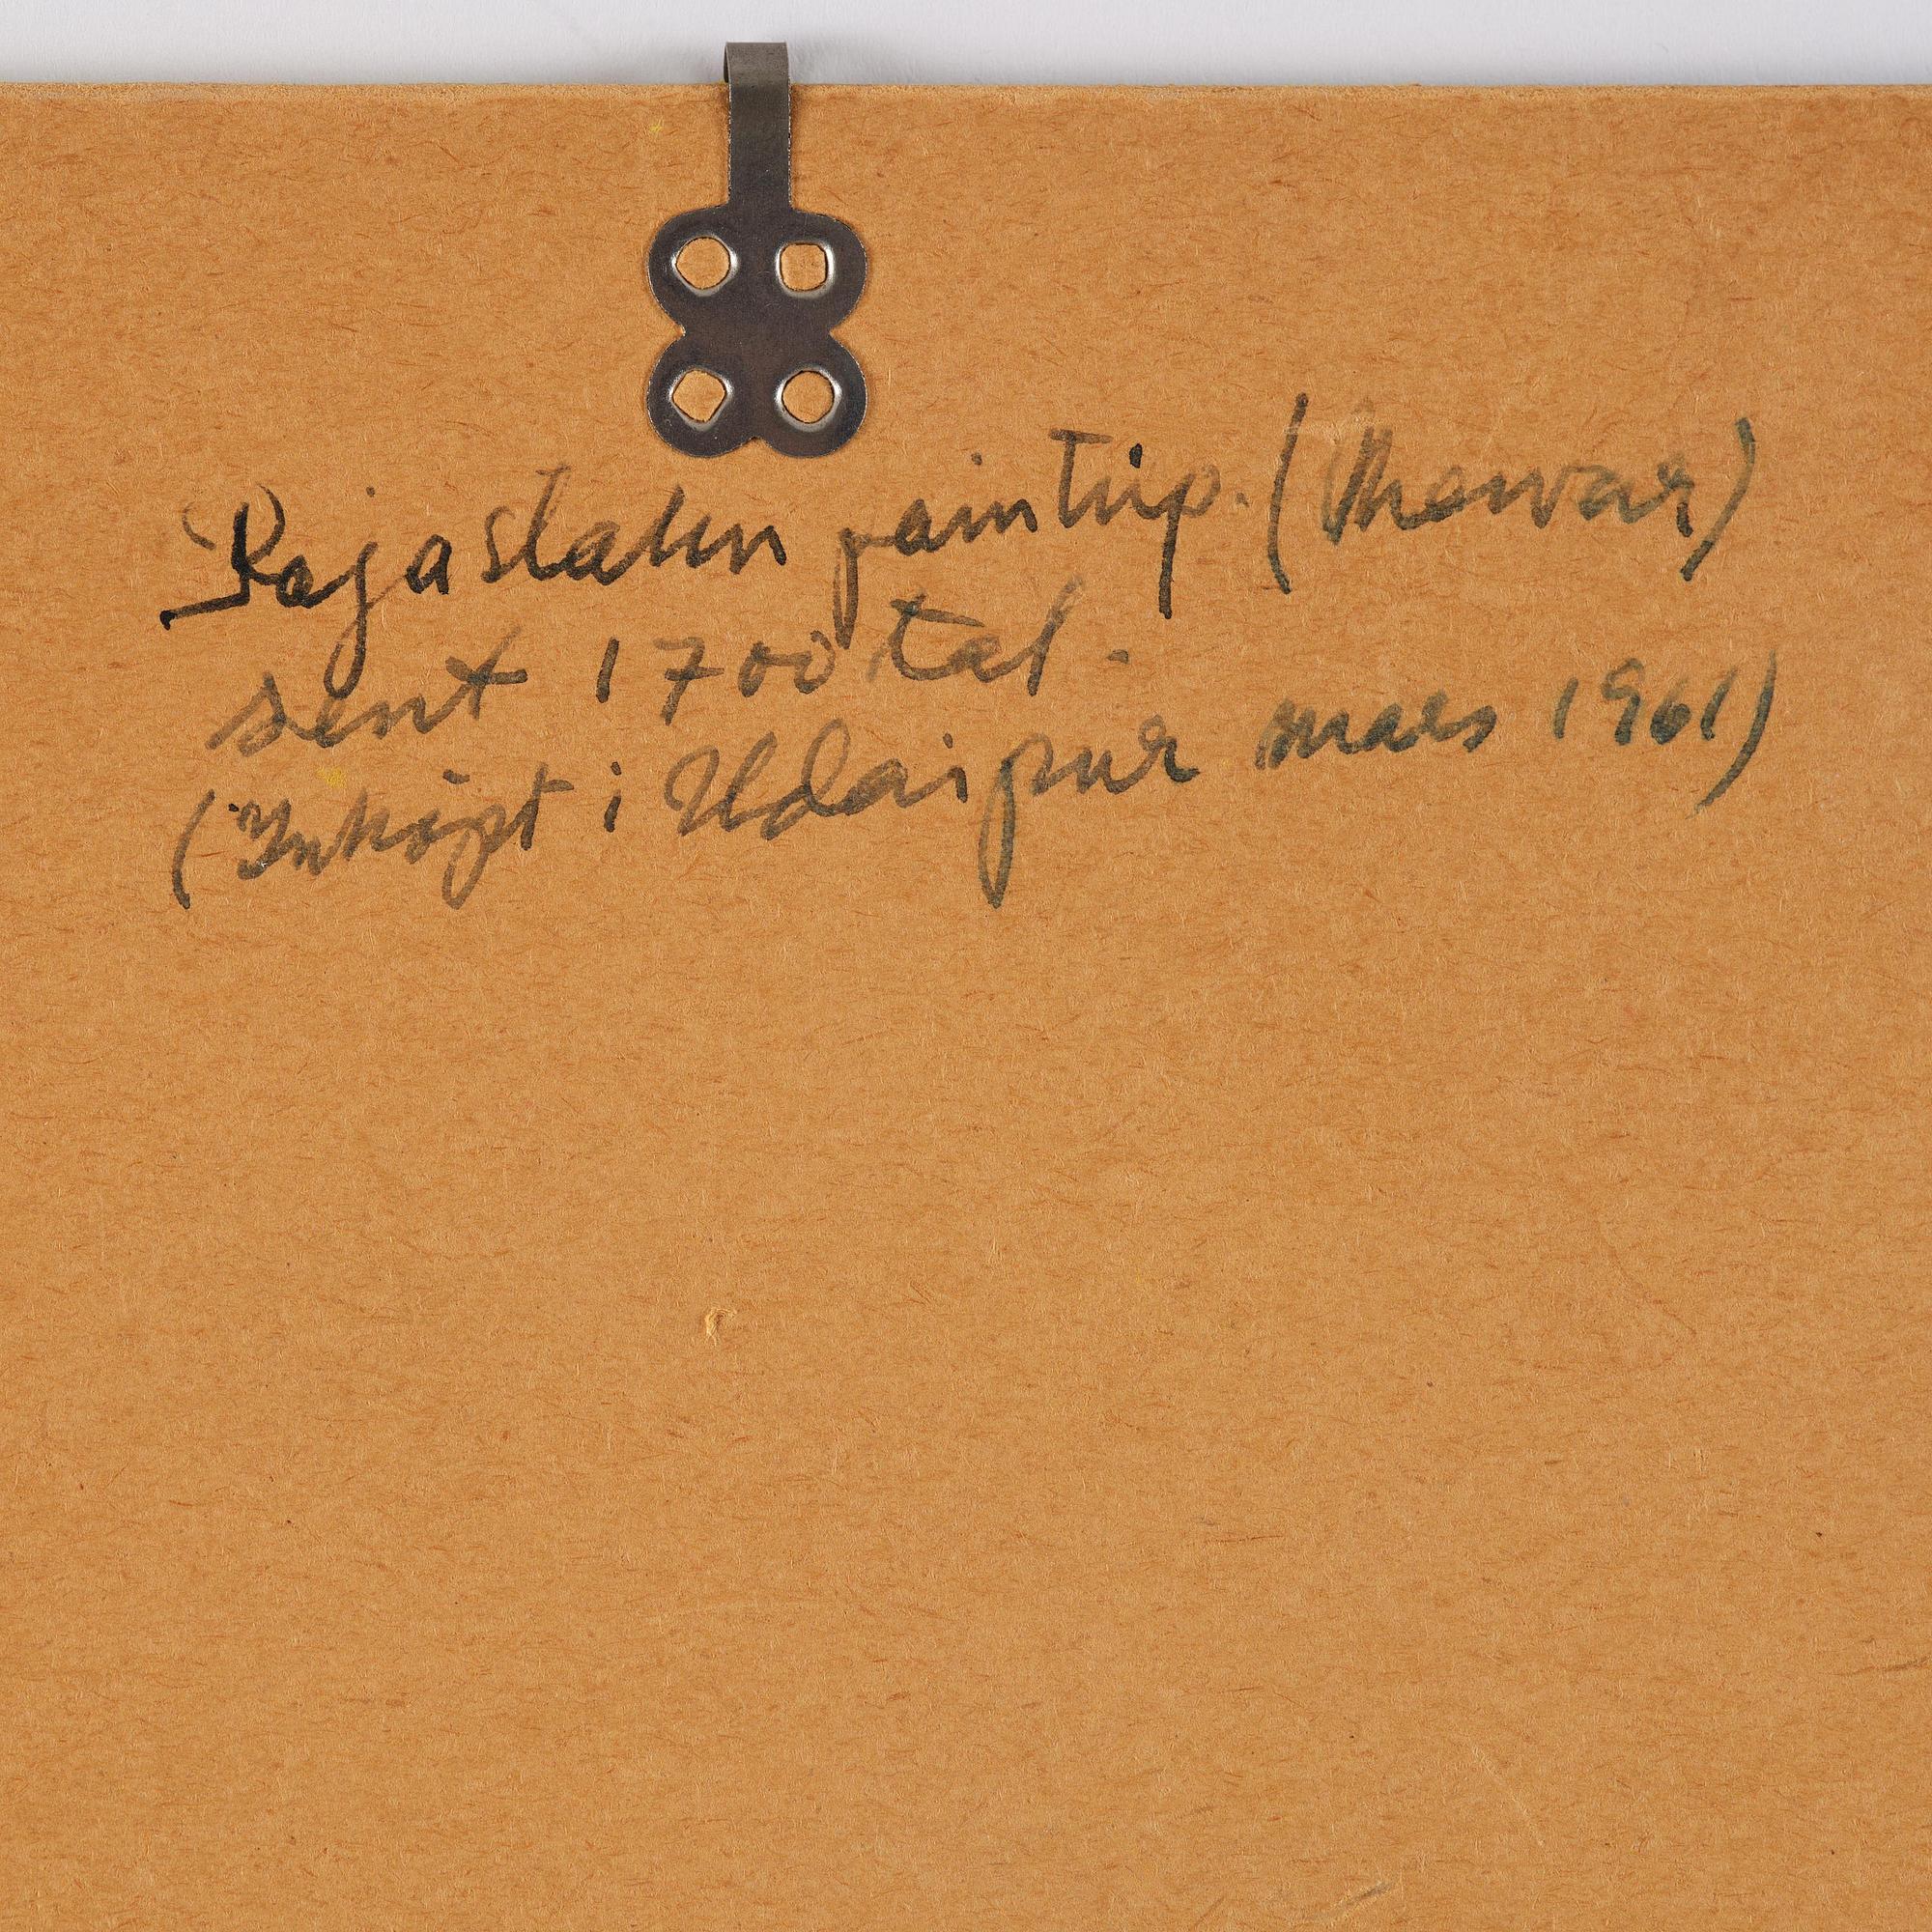 Rajastahn painting. (Mewar)
sent 1700 tal.
(Inköpt i Udaipur mars 1961)